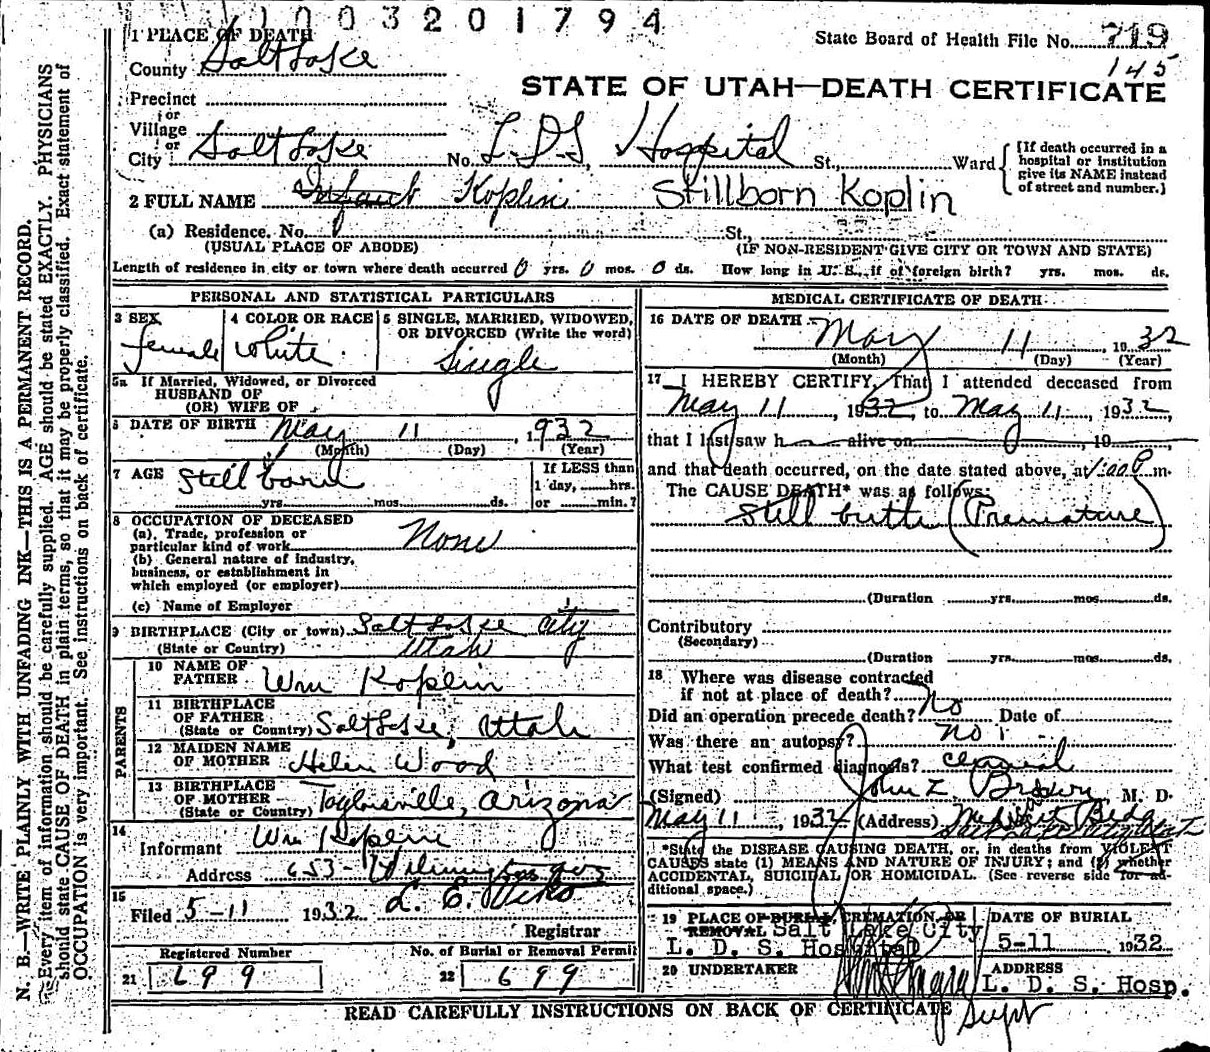 1003201794
1 PLACE OF DEATH
State Board of Health File No. 719
145
County Salt Lake
STATE OF UTAH—DEATH CERTIFICATE
Precinct
or
Village
or
City Salt Lake No. L.D.S. Hospital St., Ward
[If death occurred in a hospital or institution give its NAME instead of street and number.]
2 FULL NAME Infant Koplin Stillborn Koplin
(a) Residence. No. St.,
(USUAL PLACE OF ABODE) (IF NON-RESIDENT GIVE CITY OR TOWN AND STATE)
Length of residence in city or town where death occurred 0 yrs. 0 mos. 0 ds. How long in U. S., if of foreign birth? yrs. mos. ds.
PERSONAL AND STATISTICAL PARTICULARS
3 SEX female
4 COLOR OR RACE White
5 SINGLE, MARRIED, WIDOWED, OR DIVORCED (Write the word) Single
5a If Married, Widowed, or Divorced
HUSBAND OF
(OR) WIFE OF
6 DATE OF BIRTH May 11, 1932
(Month) (Day) (Year)
7 AGE Stillborn
yrs. mos. ds.
If LESS than
1 day, hrs.
or min.?
8 OCCUPATION OF DECEASED
(a) Trade, profession or
particular kind of work None
(b) General nature of industry,
business, or establishment in
which employed (or employer)
(c) Name of Employer
9 BIRTHPLACE (City or town) Salt Lake City
(State or Country) Utah
PARENTS
10 NAME OF
FATHER Wm Koplin
11 BIRTHPLACE
OF FATHER
(State or Country) Salt Lake, Utah
12 MAIDEN NAME
OF MOTHER Helen Wood
13 BIRTHPLACE
OF MOTHER
(State or Country) Taylorsville, Arizona
14
Informant Wm Koplin
Address 653
15
Filed 5-11 1932 L. E.
Registrar
Registered Number
21 699
No. of Burial or Removal Permit
22 699
MEDICAL CERTIFICATE OF DEATH
16 DATE OF DEATH May 11, 1932
(Month) (Day) (Year)
17 I HEREBY CERTIFY, That I attended deceased from
May 11, 1932, to May 11, 1932,
that I last saw h alive on , 19
and that death occurred, on the date stated above, at 1:00 P m.
The CAUSE DEATH* was as follows:
Still birth (Premature)
(Duration yrs. mos. ds.
Contributory
(Secondary)
(Duration yrs. mos. ds.
18 Where was disease contracted
if not at place of death?
Did an operation precede death? No Date of
Was there an autopsy? no
What test confirmed diagnosis? clinical
(Signed) John Z Brown, M. D.
May 11, 1932 (Address)
*State the DISEASE CAUSING DEATH, or, in deaths from VIOLENT
CAUSES state (1) MEANS AND NATURE OF INJURY; and (2) whether
ACCIDENTAL, SUICIDAL OR HOMICIDAL. (See reverse side for ad-
ditional space.)
19 PLACE OF BURIAL, CREMATION, OR
REMOVAL Salt Lake City
L. D. S. Hospital
DATE OF BURIAL
5-11 1932
20 UNDERTAKER
Supt
ADDRESS
L. D. S. Hosp.
READ CAREFULLY INSTRUCTIONS ON BACK OF CERTIFICATE
N. B.—WRITE PLAINLY WITH UNFADING INK—THIS IS A PERMANENT RECORD.
Every item of information should be carefully supplied. AGE should be stated EXACTLY. PHYSICIANS
should state CAUSE OF DEATH in plain terms, so that it may be properly classified. Exact statement of
OCCUPATION is very important. See instructions on back of certificate.